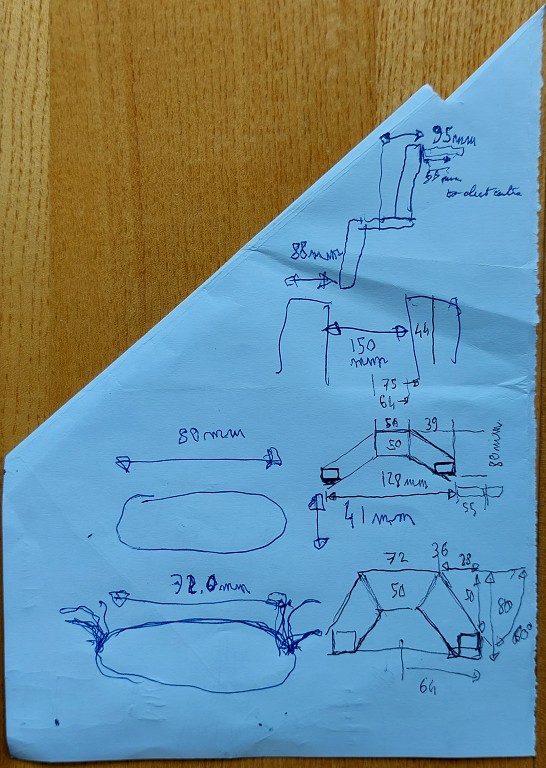 95mm
55mm
to duct centre
88mm
44
150
mm
75
64
50
39
50
80mm
128mm
55
88mm
41mm
72.0mm
72
36
28
50
50
80
64